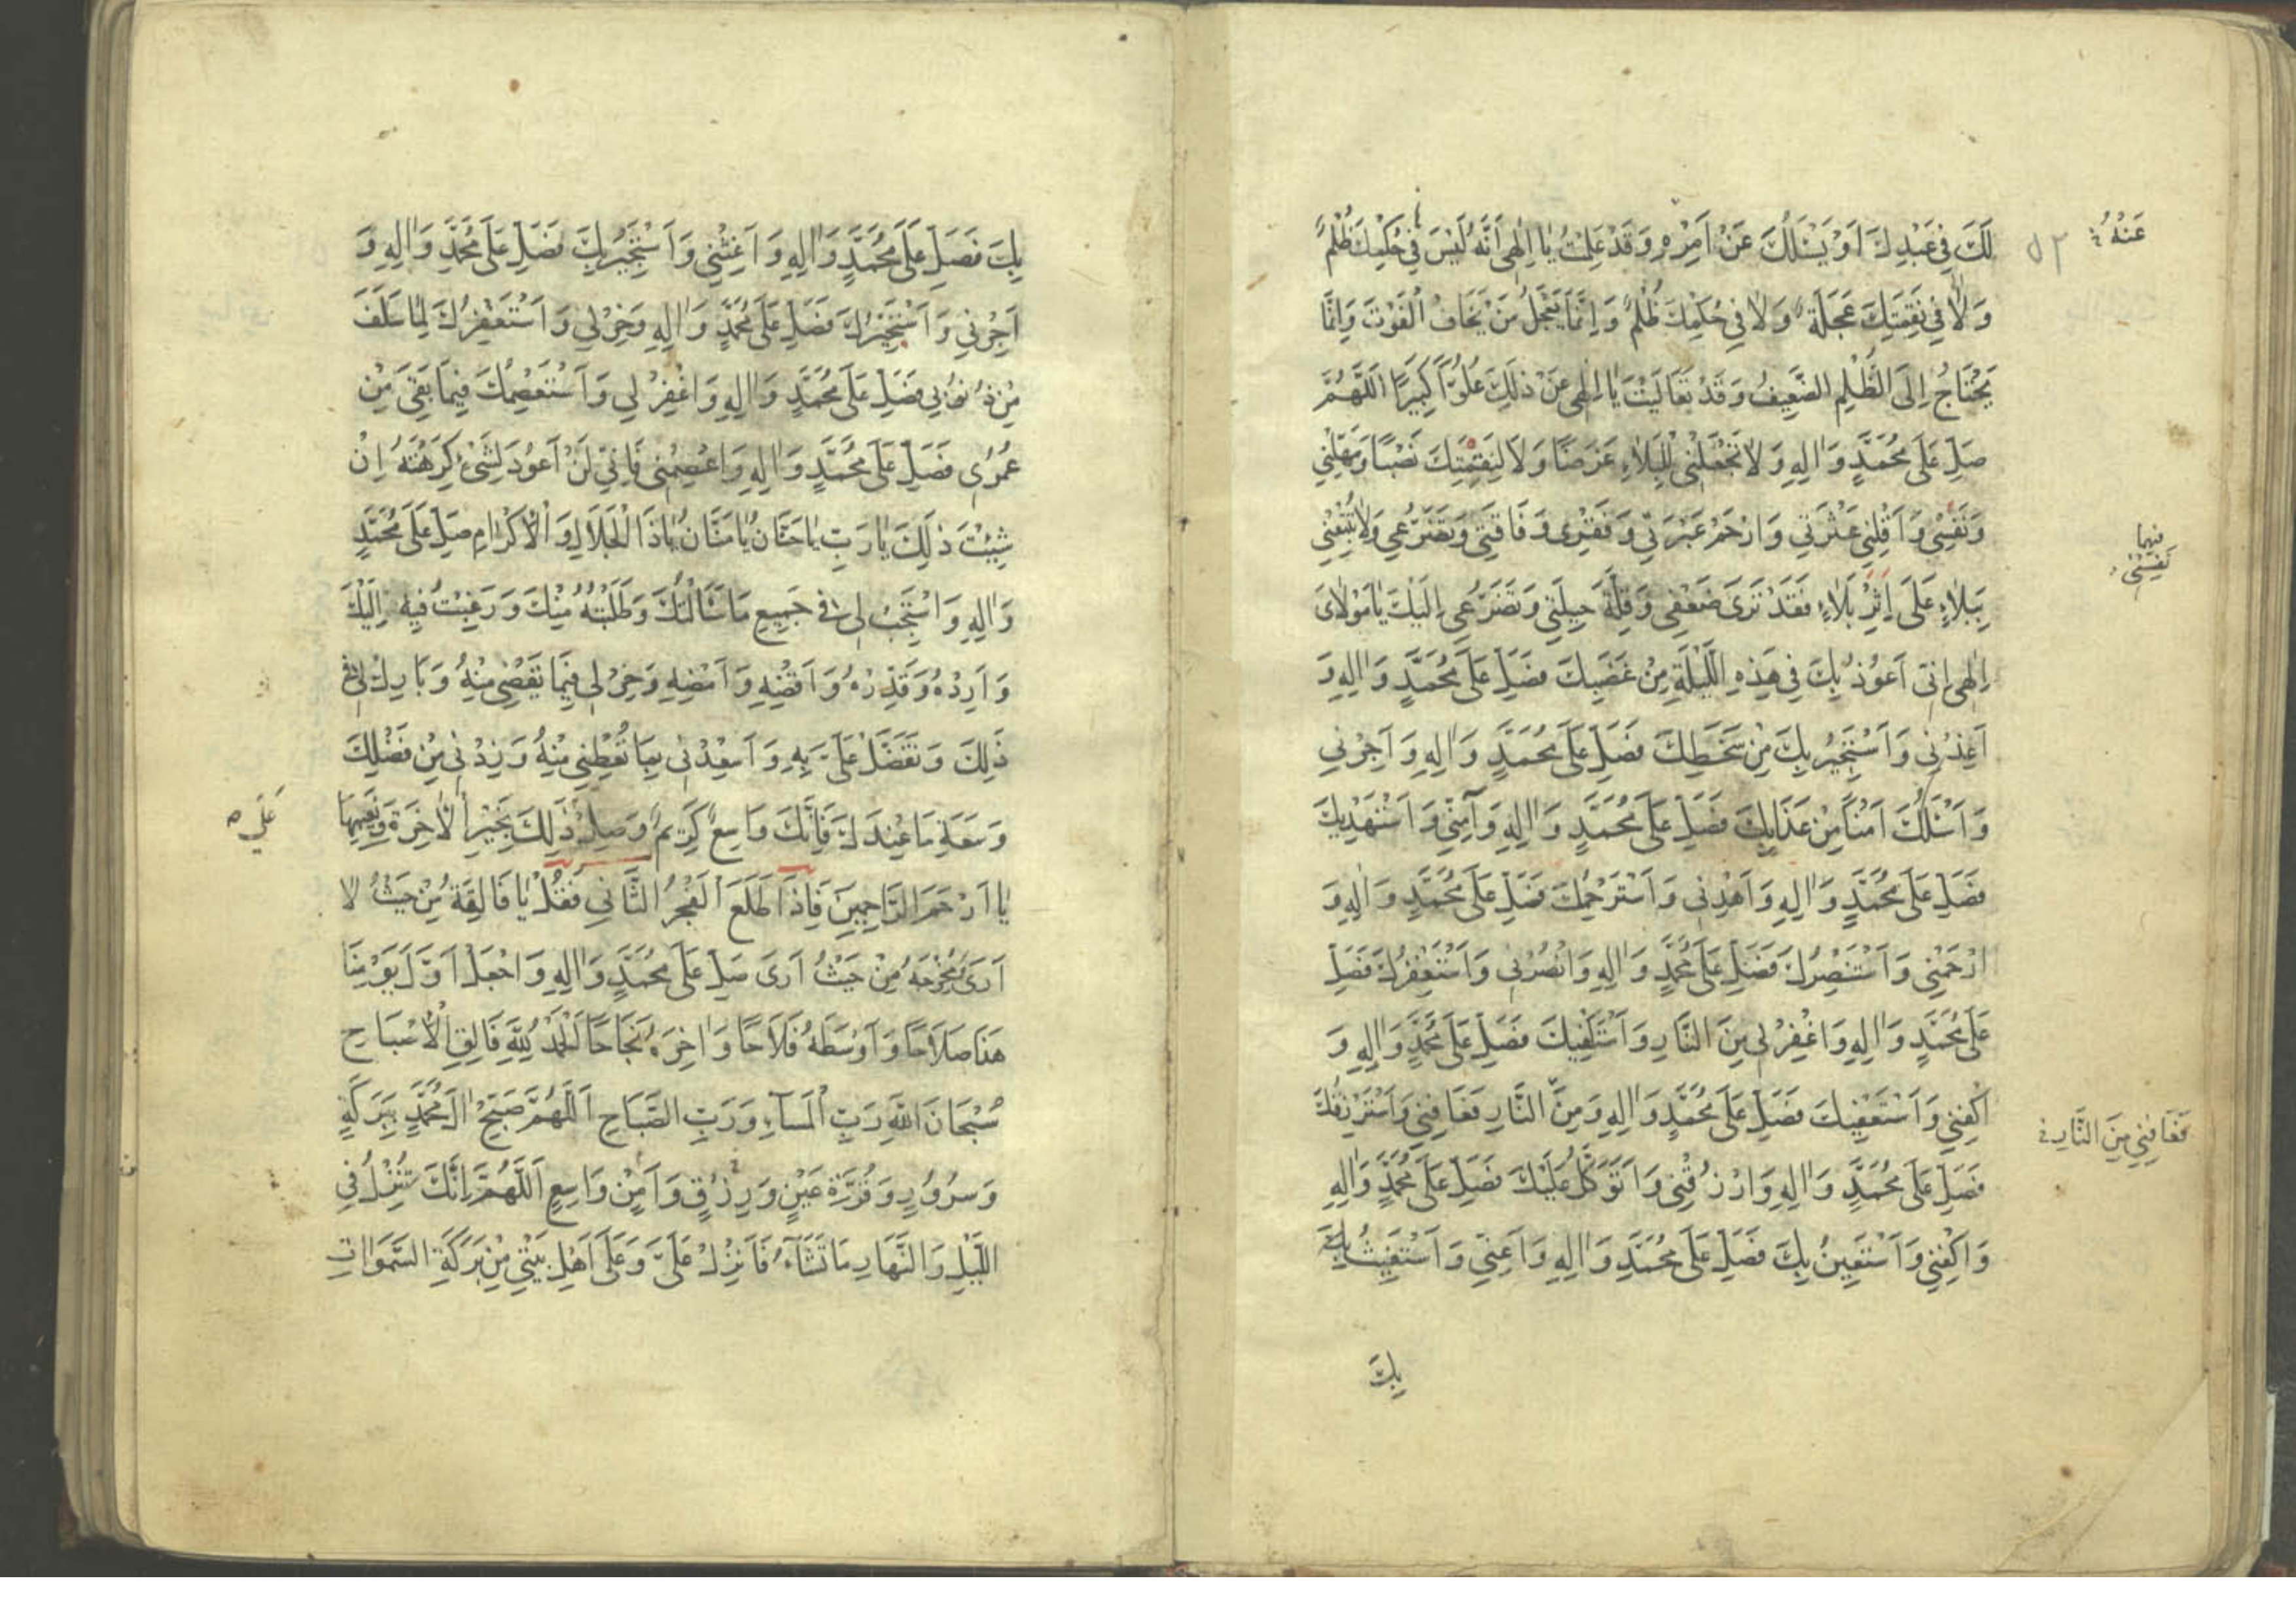 لَكَ فِي عَبْدِكَ اَوْ يَسْئَلُكَ عَنْ اَمْرِهِ وَقَدْ عَلِمْتُ يٰا اِلٰهِي اَنَّهُ لَيْسَ فِي حُكْمِكَ ظُلْمٌ
عَنْهُ
٥٢
وَلاٰ فِي نَقِمَتِكَ عَجَلَةٌ وَلاٰ فِي حُكْمِكَ ظُلْمٌ وَاِنَّمَا يَعْجَلُ مَنْ يَخَافُ الْفَوْتَ وَاِنَّمَا
يَحْتَاجُ اِلَى الظُّلْمِ الضَّعِيفُ وَقَدْ تَعَالَيْتَ يٰا اِلٰهِي عَنْ ذٰلِكَ عُلُوًّا كَبِيرًا اَللّٰهُمَّ
صَلِّ عَلَى مُحَمَّدٍ وَاٰلِهِ وَلاٰ تَجْعَلْنِي لِلْبَلاٰءِ غَرَضًا وَلاٰ لِنَقِمَتِكَ نَصْبًا وَمَهِّلْنِي
وَنَفِّسْنِي وَاَقِلْنِي عَثْرَتِي وَارْحَمْ عَبْرَتِي وَفَقْرِي وَفَاقَتِي وَتَضَرُّعِي وَلاٰ تُتْبِعْنِي
بِبَلاٰءٍ عَلَى اِثْرِ بَلاٰءٍ فَقَدْ تَرَى ضَعْفِي وَقِلَّةَ حِيلَتِي وَتَضَرُّعِي اِلَيْكَ يٰا مَوْلاٰيَ
اِلٰهِي اِنِّي اَعُوذُ بِكَ فِي هٰذِهِ اللَّيْلَةِ مِنْ غَضَبِكَ فَصَلِّ عَلَى مُحَمَّدٍ وَاٰلِهِ وَ
اَعِذْنِي وَاَسْتَجِيرُ بِكَ مِنْ سَخَطِكَ فَصَلِّ عَلَى مُحَمَّدٍ وَاٰلِهِ وَاَجِرْنِي
وَاَسْئَلُكَ اَمْنًا مِنْ عَذَابِكَ فَصَلِّ عَلَى مُحَمَّدٍ وَاٰلِهِ وَآمِنِّي وَاَسْتَهْدِيكَ
فَصَلِّ عَلَى مُحَمَّدٍ وَاٰلِهِ وَاهْدِنِي وَاَسْتَرْحِمُكَ فَصَلِّ عَلَى مُحَمَّدٍ وَاٰلِهِ وَ
ارْحَمْنِي وَاَسْتَنْصِرُكَ فَصَلِّ عَلَى مُحَمَّدٍ وَاٰلِهِ وَانْصُرْنِي وَاَسْتَغْفِرُكَ فَصَلِّ
عَلَى مُحَمَّدٍ وَاٰلِهِ وَاغْفِرْ لِي مِنَ النَّارِ وَاَسْتَكْفِيكَ فَصَلِّ عَلَى مُحَمَّدٍ وَاٰلِهِ وَ
اكْفِنِي وَاَسْتَعْفِيكَ فَصَلِّ عَلَى مُحَمَّدٍ وَاٰلِهِ وَمِنَ النَّارِ فَعَافِنِي وَاَسْتَرْزِقُكَ
فَعَافِنِي مِنَ النَّارِ
فَصَلِّ عَلَى مُحَمَّدٍ وَاٰلِهِ وَارْزُقْنِي وَاَتَوَكَّلُ عَلَيْكَ فَصَلِّ عَلَى مُحَمَّدٍ وَاٰلِهِ
وَاكْفِنِي وَاَسْتَعِينُ بِكَ فَصَلِّ عَلَى مُحَمَّدٍ وَاٰلِهِ وَاَعِنِّي وَاَسْتَغِيثُ بِكَ
بِكَ
بِكَ فَصَلِّ عَلَى مُحَمَّدٍ وَاٰلِهِ وَاَغِثْنِي وَاَسْتَجِيرُ بِكَ فَصَلِّ عَلَى مُحَمَّدٍ وَاٰلِهِ وَ
اَجِرْنِي وَاَسْتَخِيرُكَ فَصَلِّ عَلَى مُحَمَّدٍ وَاٰلِهِ وَخِرْ لِي وَاَسْتَغْفِرُكَ لِمٰا سَلَفَ
مِنْ ذُنُوبِي فَصَلِّ عَلَى مُحَمَّدٍ وَاٰلِهِ وَاغْفِرْ لِي وَاَسْتَعْصِمُكَ فِيمَا بَقِيَ مِنْ
عُمُرِي فَصَلِّ عَلَى مُحَمَّدٍ وَاٰلِهِ وَاعْصِمْنِي فَاِنِّي لَنْ اَعُودَ لِشَيْءٍ كَرِهْتَهُ اِنْ
شِئْتَ ذٰلِكَ يٰا رَبِّ يٰا حَنَّانُ يٰا مَنَّانُ يٰا ذَا الْجَلاٰلِ وَالْاِكْرٰامِ صَلِّ عَلَى مُحَمَّدٍ
وَاٰلِهِ وَاسْتَجِبْ لِي فِي جَمِيعِ مَا سَاَلْتُكَ وَطَلَبْتُهُ مِنْكَ وَرَغِبْتُ فِيهِ اِلَيْكَ
وَاَرِدْهُ وَقَدِّرْهُ وَاقْضِهِ وَاَمْضِهِ وَخِرْ لِي فِيمَا تَقْضِي مِنْهُ وَبَارِكْ لِي فِي
ذٰلِكَ وَتَفَضَّلْ عَلَيَّ بِهِ وَاَسْعِدْنِي بِمَا تُعْطِينِي مِنْهُ وَزِدْنِي مِنْ فَضْلِكَ
وَسَعَةِ مَا عِنْدَكَ فَاِنَّكَ وَاسِعٌ كَرِيمٌ وَصِلْ ذٰلِكَ بِخَيْرِ الْاٰخِرَةِ وَنَعِيمِهَا
يٰا اَرْحَمَ الرَّاحِمِينَ فَاِذَا طَلَعَ الْفَجْرُ الثَّانِي فَقُلْ يٰا فَالِقَهُ مِنْ حَيْثُ لاٰ
اَرَى وَمُخْرِجَهُ مِنْ حَيْثُ اَرَى صَلِّ عَلَى مُحَمَّدٍ وَاٰلِهِ وَاجْعَلْ اَوَّلَ يَوْمِنَا
هٰذَا صَلاٰحًا وَاَوْسَطَهُ فَلاٰحًا وَاٰخِرَهُ نَجَاحًا اَلْحَمْدُ لِلّٰهِ فَالِقِ الْاِصْبَاحِ
سُبْحَانَ اللّٰهِ رَبِّ الْمَسَآءِ وَرَبِّ الصَّبَاحِ اَللّٰهُمَّ صَبِّحْ اٰلَ مُحَمَّدٍ بِبَرَكَةٍ
وَسُرُورٍ وَقُرَّةِ عَيْنٍ وَرِزْقٍ وَاَمْنٍ وَاسِعٍ اَللّٰهُمَّ اِنَّكَ تُنْزِلُ فِي
اللَّيْلِ وَالنَّهَارِ مَا تَشَآءُ فَاَنْزِلْ عَلَيَّ وَعَلَى اَهْلِ بَيْتِي مِنْ بَرَكَةِ السَّمٰوَاتِ